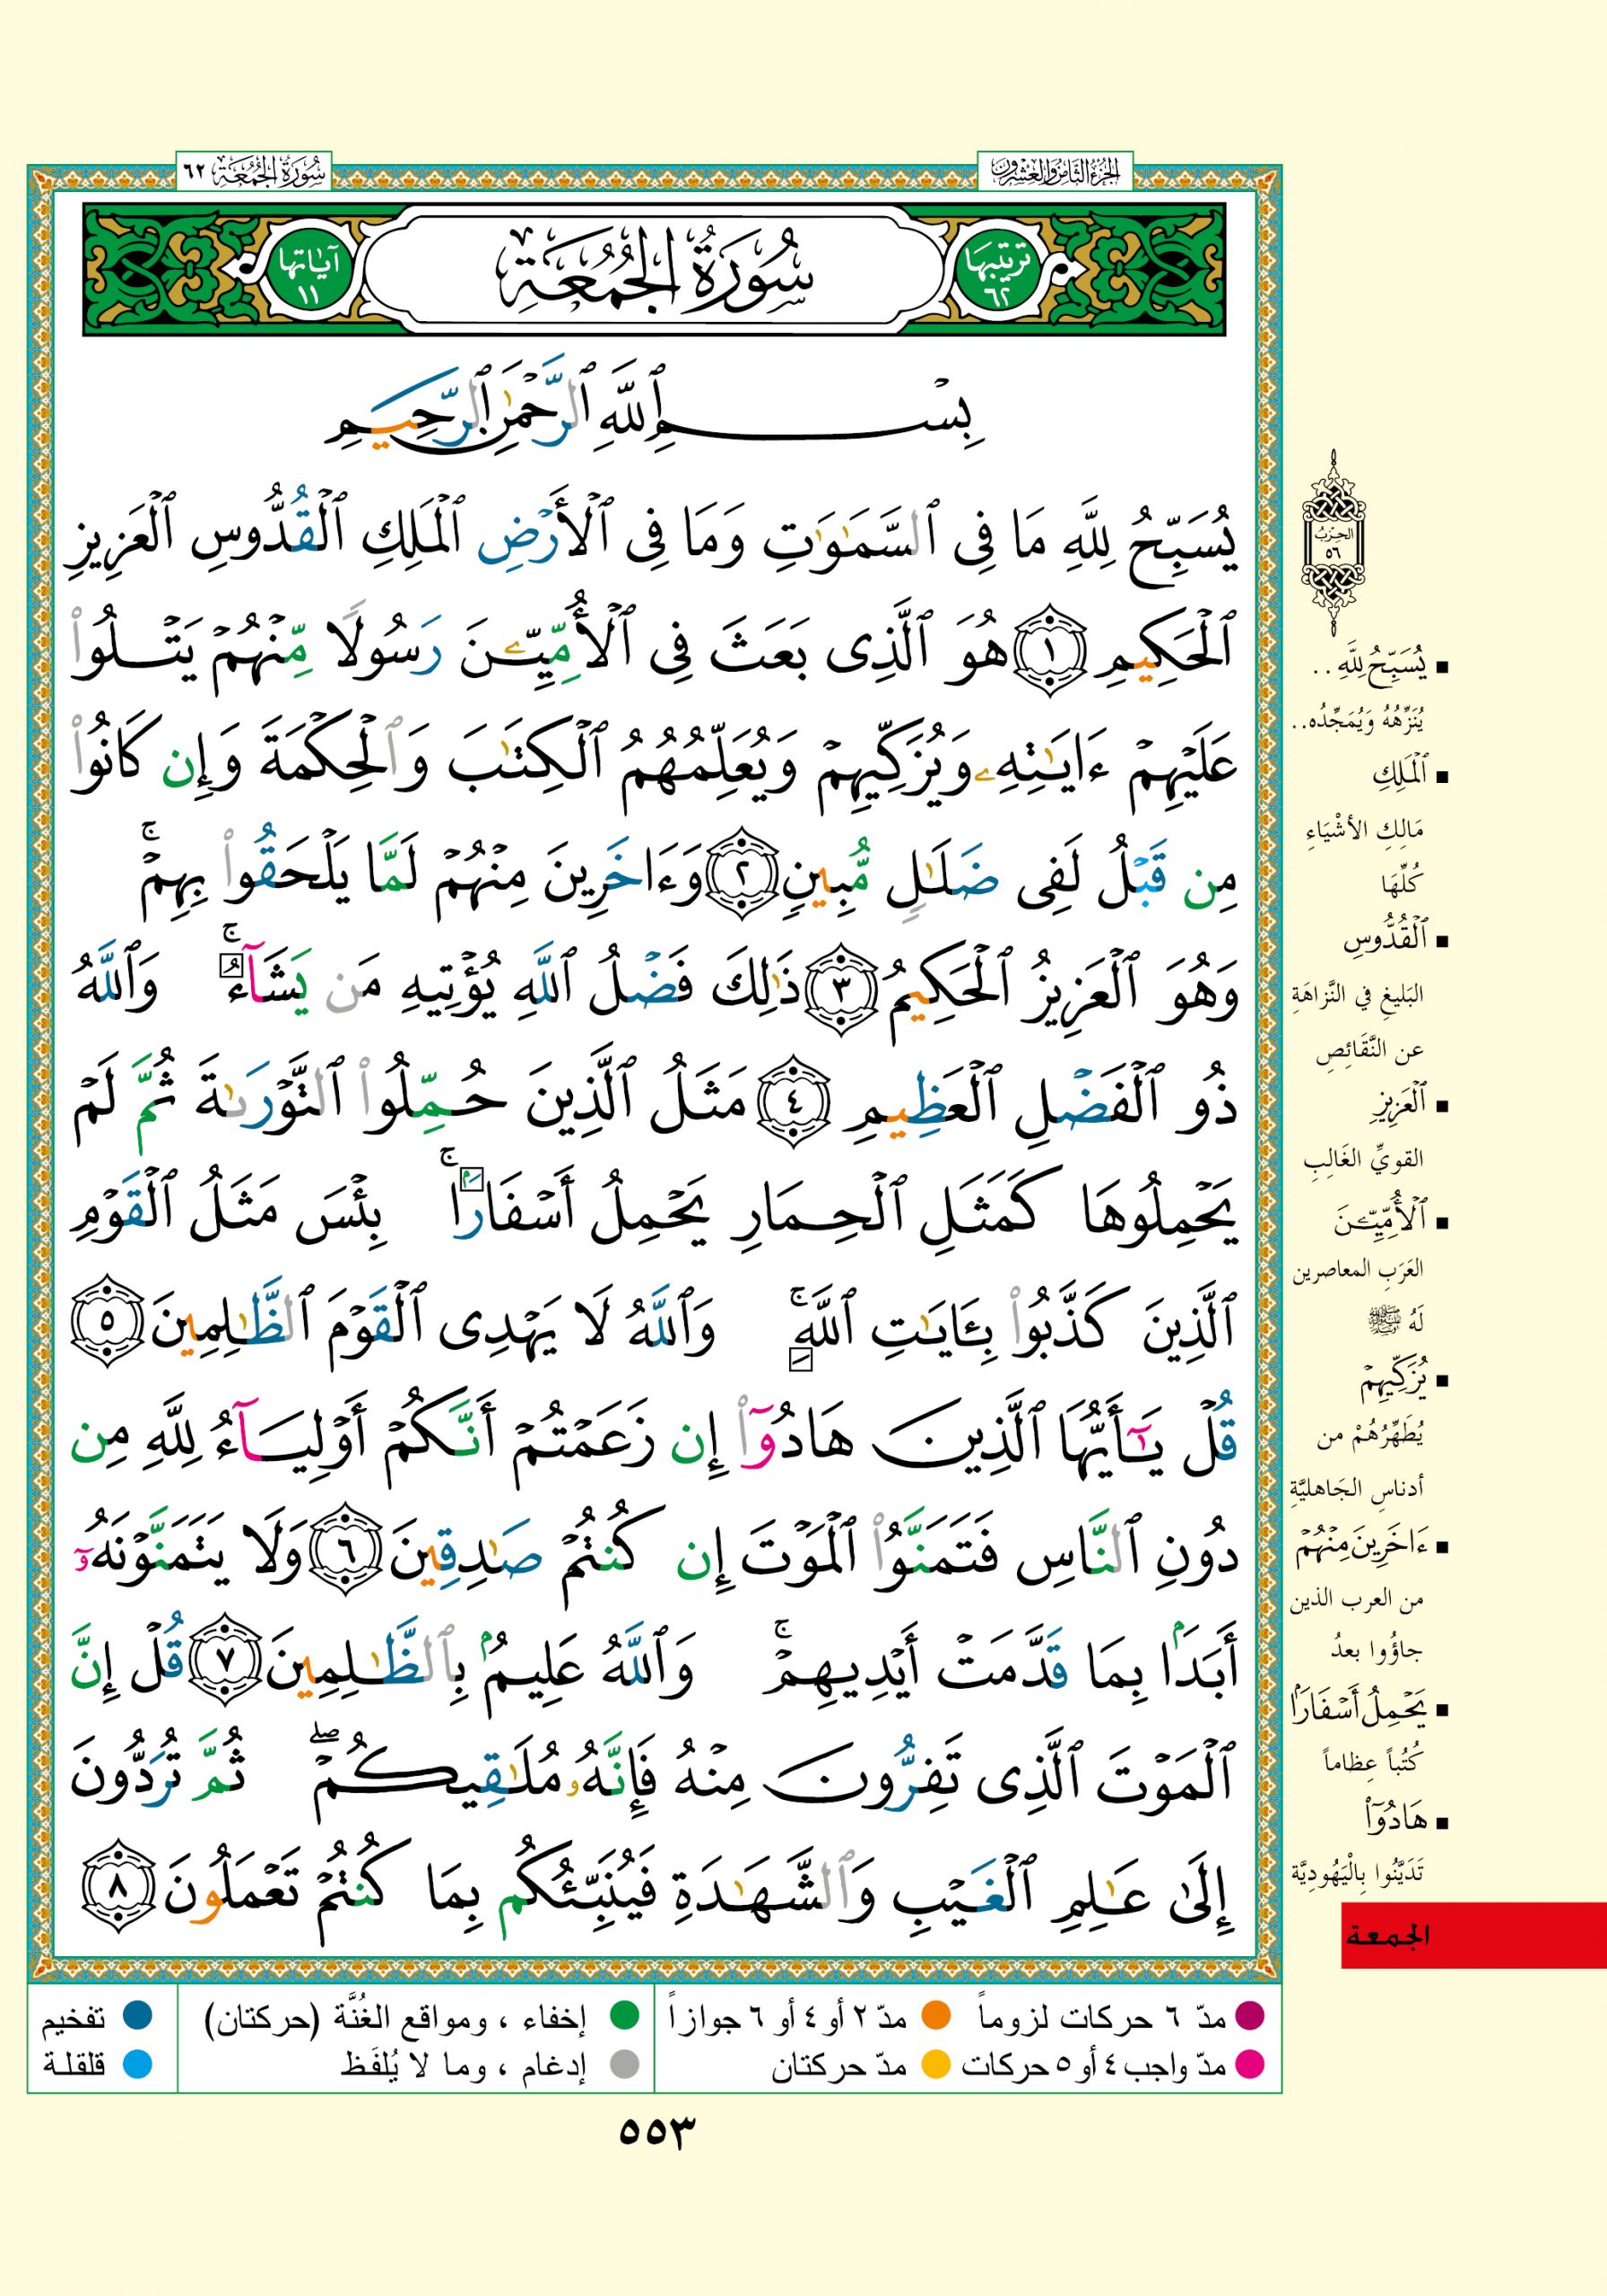 الجُزْءُ الثَّامِنُ وَالعِشْرُونَ
سُورَةُ الجُمُعَةِ ٦٢
تَرتيبُهَا ٦٢
سُورَةُ الجُمُعَةِ
آيَاتُهَا ١١
بِسۡمِ ٱللَّهِ ٱلرَّحۡمَٰنِ ٱلرَّحِيمِ
يُسَبِّحُ لِلَّهِ مَا فِي ٱلسَّمَٰوَٰتِ وَمَا فِي ٱلۡأَرۡضِ ٱلۡمَلِكِ ٱلۡقُدُّوسِ ٱلۡعَزِيزِ
ٱلۡحَكِيمِ ١ هُوَ ٱلَّذِي بَعَثَ فِي ٱلۡأُمِّيِّـۧنَ رَسُولٗا مِّنۡهُمۡ يَتۡلُواْ
عَلَيۡهِمۡ ءَايَٰتِهِۦ وَيُزَكِّيهِمۡ وَيُعَلِّمُهُمُ ٱلۡكِتَٰبَ وَٱلۡحِكۡمَةَ وَإِن كَانُواْ
مِن قَبۡلُ لَفِي ضَلَٰلٖ مُّبِينٖ ٢ وَءَاخَرِينَ مِنۡهُمۡ لَمَّا يَلۡحَقُواْ بِهِمۡۚ
وَهُوَ ٱلۡعَزِيزُ ٱلۡحَكِيمُ ٣ ذَٰلِكَ فَضۡلُ ٱللَّهِ يُؤۡتِيهِ مَن يَشَآءُۚ وَٱللَّهُ
ذُو ٱلۡفَضۡلِ ٱلۡعَظِيمِ ٤ مَثَلُ ٱلَّذِينَ حُمِّلُواْ ٱلتَّوۡرَىٰةَ ثُمَّ لَمۡ
يَحۡمِلُوهَا كَمَثَلِ ٱلۡحِمَارِ يَحۡمِلُ أَسۡفَارَۢاۚ بِئۡسَ مَثَلُ ٱلۡقَوۡمِ
ٱلَّذِينَ كَذَّبُواْ بِـَٔايَٰتِ ٱللَّهِۚ وَٱللَّهُ لَا يَهۡدِي ٱلۡقَوۡمَ ٱلظَّٰلِمِينَ ٥
قُلۡ يَٰٓأَيُّهَا ٱلَّذِينَ هَادُوٓاْ إِن زَعَمۡتُمۡ أَنَّكُمۡ أَوۡلِيَآءُ لِلَّهِ مِن
دُونِ ٱلنَّاسِ فَتَمَنَّوُاْ ٱلۡمَوۡتَ إِن كُنتُمۡ صَٰدِقِينَ ٦ وَلَا يَتَمَنَّوۡنَهُۥٓ
أَبَدَۢا بِمَا قَدَّمَتۡ أَيۡدِيهِمۡۚ وَٱللَّهُ عَلِيمُۢ بِٱلظَّٰلِمِينَ ٧ قُلۡ إِنَّ
ٱلۡمَوۡتَ ٱلَّذِي تَفِرُّونَ مِنۡهُ فَإِنَّهُۥ مُلَٰقِيكُمۡۖ ثُمَّ تُرَدُّونَ
إِلَىٰ عَٰلِمِ ٱلۡغَيۡبِ وَٱلشَّهَٰدَةِ فَيُنَبِّئُكُم بِمَا كُنتُمۡ تَعۡمَلُونَ ٨
الحِزْبُ
٥٦
يُسَبِّحُ لِلَّهِ ..
يُنَزِّهُهُ وَيُمَجِّدُه..
ٱلۡمَلِكِ
مَالِكِ الأشْيَاءِ
كُلِّهَا
ٱلۡقُدُّوسِ
البَليغِ في النَّزاهَةِ
عن النَّقَائِصِ
ٱلۡعَزِيزِ
القويِّ الغَالِبِ
ٱلۡأُمِّيِّـۧنَ
العَرَبِ المعاصرين
لَهُ ﷺ
يُزَكِّيهِمۡ
يُطَهِّرُهُمْ من
أدناسِ الجَاهليَّةِ
ءَاخَرِينَ مِنۡهُمۡ
من العرب الذين
جاؤُوا بعدُ
يَحۡمِلُ أَسۡفَارَۢا
كُتُباً عِظاماً
هَادُوٓاْ
تَدَيَّنُوا بِالْيَهُودِيَّة
الجمعة
مدّ ٦ حركات لزوماً
مدّ ٢ أو ٤ أو ٦ جوازاً
إخفاء ، ومواقع الغُنَّة (حركتان)
تفخيم
مدّ واجب ٤ أو ٥ حركات
مدّ حركتان
إدغام ، وما لا يُلفَظ
قلقلة
٥٥٣